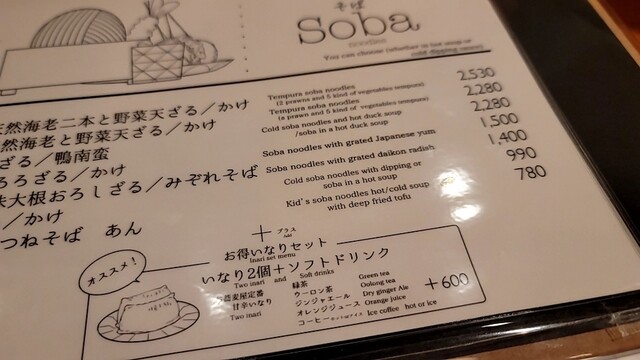 そば
Soba
noodles
You can choose (whether in hot soup or
cold dipping sauce)
天然海老二本と野菜天ざる／かけ
Tempura soba noodles
(2 prawns and 5 kind of vegetables tempura)
2,530
然海老と野菜天ざる／かけ
Tempura soba noodles
(a prawn and 5 kind of vegetables tempura)
2,280
ざる／鴨南蛮
Cold soba noodles and hot duck soup
/soba in a hot duck soup
2,280
ろろざる／かけ
Soba noodles with grated Japanese yum
1,500
大根おろしざる／みぞれそば
Soba noodles with grated daikon radish
1,400
／かけ
Cold soba noodles with dipping or
soba in a hot soup
990
つねそば あん
Kid's soba noodles hot/cold soup
with deep fried tofu
780
＋プラス
お得いなりセット
Inari set menu
オススメ！
いなり2個＋ソフトドリンク
Two inari and Soft drinks
蕎麦屋定番
甘辛いなり
Two inari
緑茶 Green tea
ウーロン茶 Oulong tea
ジンジャエール Dry ginger Ale
オレンジジュース Orange juice
コーヒー Ice coffee hot or ice
＋600